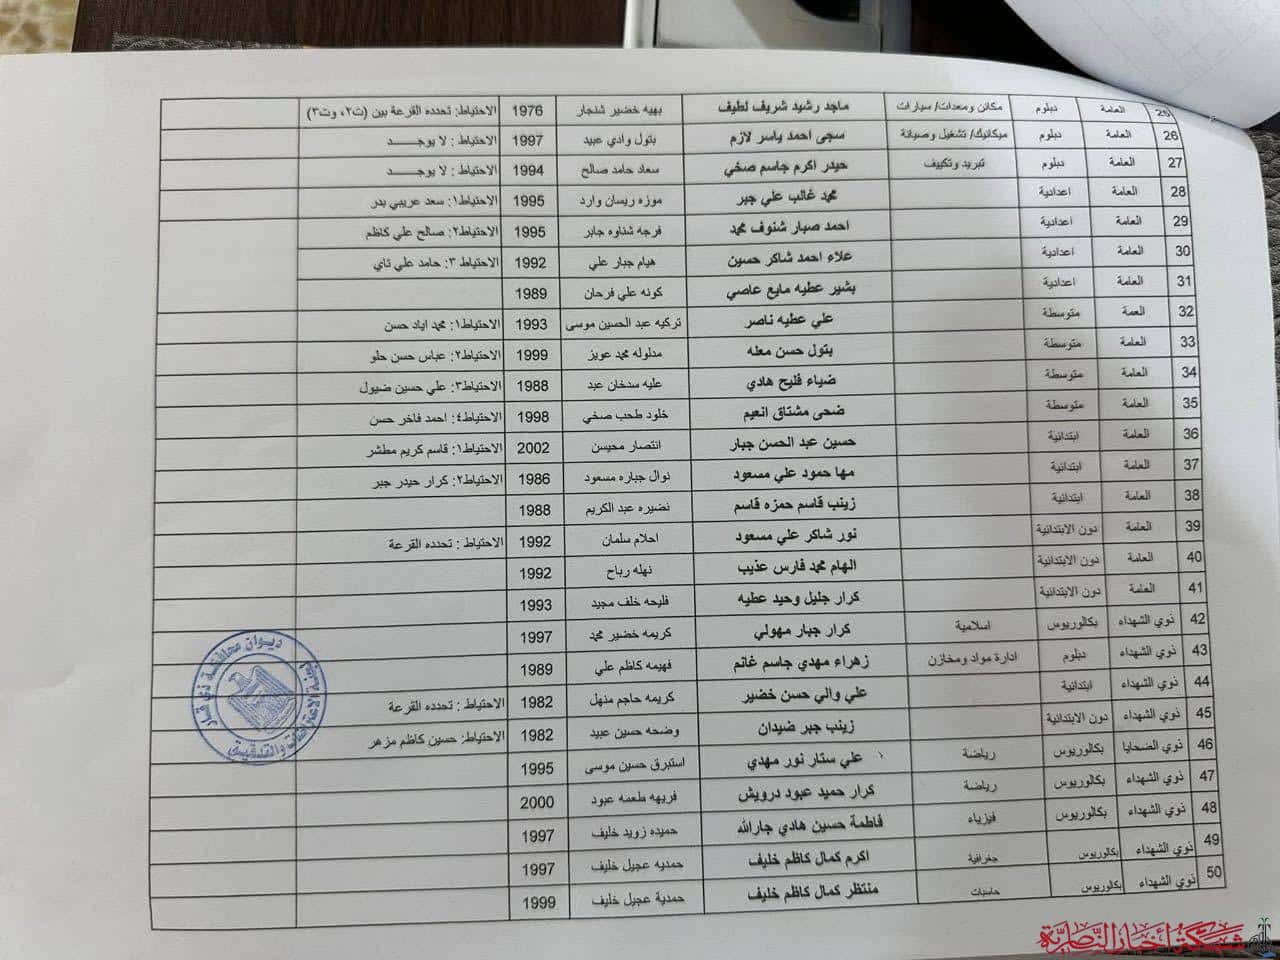 25 العامة دبلوم مكائن ومعدات/ سيارات ماجد رشيد شريف لطيف بهيه خضير شنجار 1976 الاحتياط: تحدده القرعة بين (ت٢، وت٣)
26 العامة دبلوم ميكانيك/ تشغيل وصيانة سجى احمد ياسر لازم بتول وادي عبيد 1997 الاحتياط : لا يوجــــد
27 العامة دبلوم تبريد وتكييف حيدر اكرم جاسم صخي سعاد حامد صالح 1994 الاحتياط : لا يوجــــد
28 العامة اعدادية محمد غالب علي جبر موزه ريسان وارد 1995 الاحتياط١: سعد عريبي بدر
29 العامة اعدادية احمد صبار شنوف محمد فرجه شناوه جابر 1995 الاحتياط٢: صالح علي كاظم
30 العامة اعدادية علاء احمد شاكر حسين هيام جبار علي 1992 الاحتياط ٣: حامد علي ثاي
31 العامة اعدادية بشير عطيه مايع عاصي كونه علي فرحان 1989
32 العمة متوسطة علي عطيه ناصر تركيه عبد الحسين موسى 1993 الاحتياط١: محمد اياد حسن
33 العامة متوسطة بتول حسن معله مدلوله محمد عويز 1999 الاحتياط٢: عباس حسن حلو
34 العامة متوسطة ضياء فليح هادي عليه سدخان عبد 1988 الاحتياط٣: علي حسين ضيول
35 العامة متوسطة ضحى مشتاق انعيم خلود طحب صخي 1998 الاحتياط٤: احمد فاخر حسن
36 العامة ابتدائية حسين عبد الحسن جبار انتصار محيسن 2002 الاحتياط١: قاسم كريم مطشر
37 العامة ابتدائية مها حمود علي مسعود نوال جباره مسعود 1986 الاحتياط٢: كرار حيدر جبر
38 العامة ابتدائية زينب قاسم حمزه قاسم نضيره عبد الكريم 1988
39 العامة دون الابتدائية نور شاكر علي مسعود احلام سلمان 1992 الاحتياط : تحدده القرعة
40 العامة دون الابتدائية الهام محمد فارس عذيب نهله رباح 1992
41 العامة دون الابتدائية كرار جليل وحيد عطيه فليحه خلف مجيد 1993
42 ذوي الشهداء بكالوريوس اسلامية كرار جبار مهولي كريمه خضير محمد 1997
43 ذوي الشهداء دبلوم ادارة مواد ومخازن زهراء مهدي جاسم غانم فهيمه كاظم علي 1989
44 ذوي الشهداء ابتدائية علي والي حسن خضير كريمه حاجم منهل 1982 الاحتياط : تحدده القرعة
45 ذوي الشهداء دون الابتدائية زينب جبر ضيدان وضحه حسين عبيد 1982 الاحتياط: حسين كاظم مزهر
46 ذوي الضحايا بكالوريوس رياضة علي ستار نور مهدي استبرق حسين موسى 1995
47 ذوي الشهداء بكالوريوس رياضة كرار حميد عبود درويش فريهه طعمه عبود 2000
48 ذوي الشهداء بكالوريوس فيزياء فاطمة حسين هادي جارالله حميده زويد خليف 1997
49 ذوي الشهداء بكالوريوس جغرافية اكرم كمال كاظم خليف حمديه عجيل خليف 1997
50 ذوي الشهداء بكالوريوس حاسبات منتظر كمال كاظم خليف حمدية عجيل خليف 1999
ديوان محافظة ذي قار
والتدقيق
شبكة أخبار الناصرية